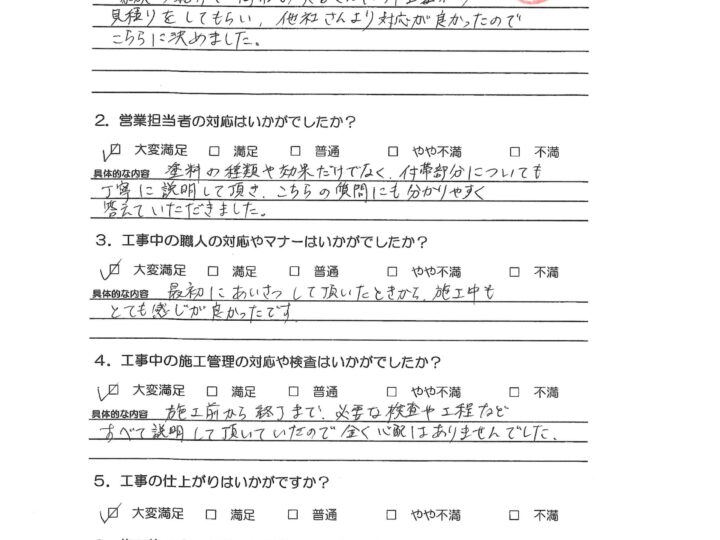 見積りをしてもらい、他社さんより対応が良かったので
こちらに決めました。
2．営業担当者の対応はいかがでしたか？
☑ 大変満足 □ 満足 □ 普通 □ やや不満 □ 不満
具体的な内容 塗料の種類や効果だけでなく、付帯部分についても
丁寧に説明して頂き、こちらの質問にも分かりやすく
答えていただきました。
3．工事中の職人の対応やマナーはいかがでしたか？
☑ 大変満足 □ 満足 □ 普通 □ やや不満 □ 不満
具体的な内容 最初にあいさつして頂いたときから、施工中も
とても感じが良かったです
4．工事中の施工管理の対応や検査はいかがでしたか？
☑ 大変満足 □ 満足 □ 普通 □ やや不満 □ 不満
具体的な内容 施工前から終了まで、必要な検査や工程など
すべて説明して頂いていたので全く心配はありませんでした。
5．工事の仕上がりはいかがですか？
☑ 大変満足 □ 満足 □ 普通 □ やや不満 □ 不満